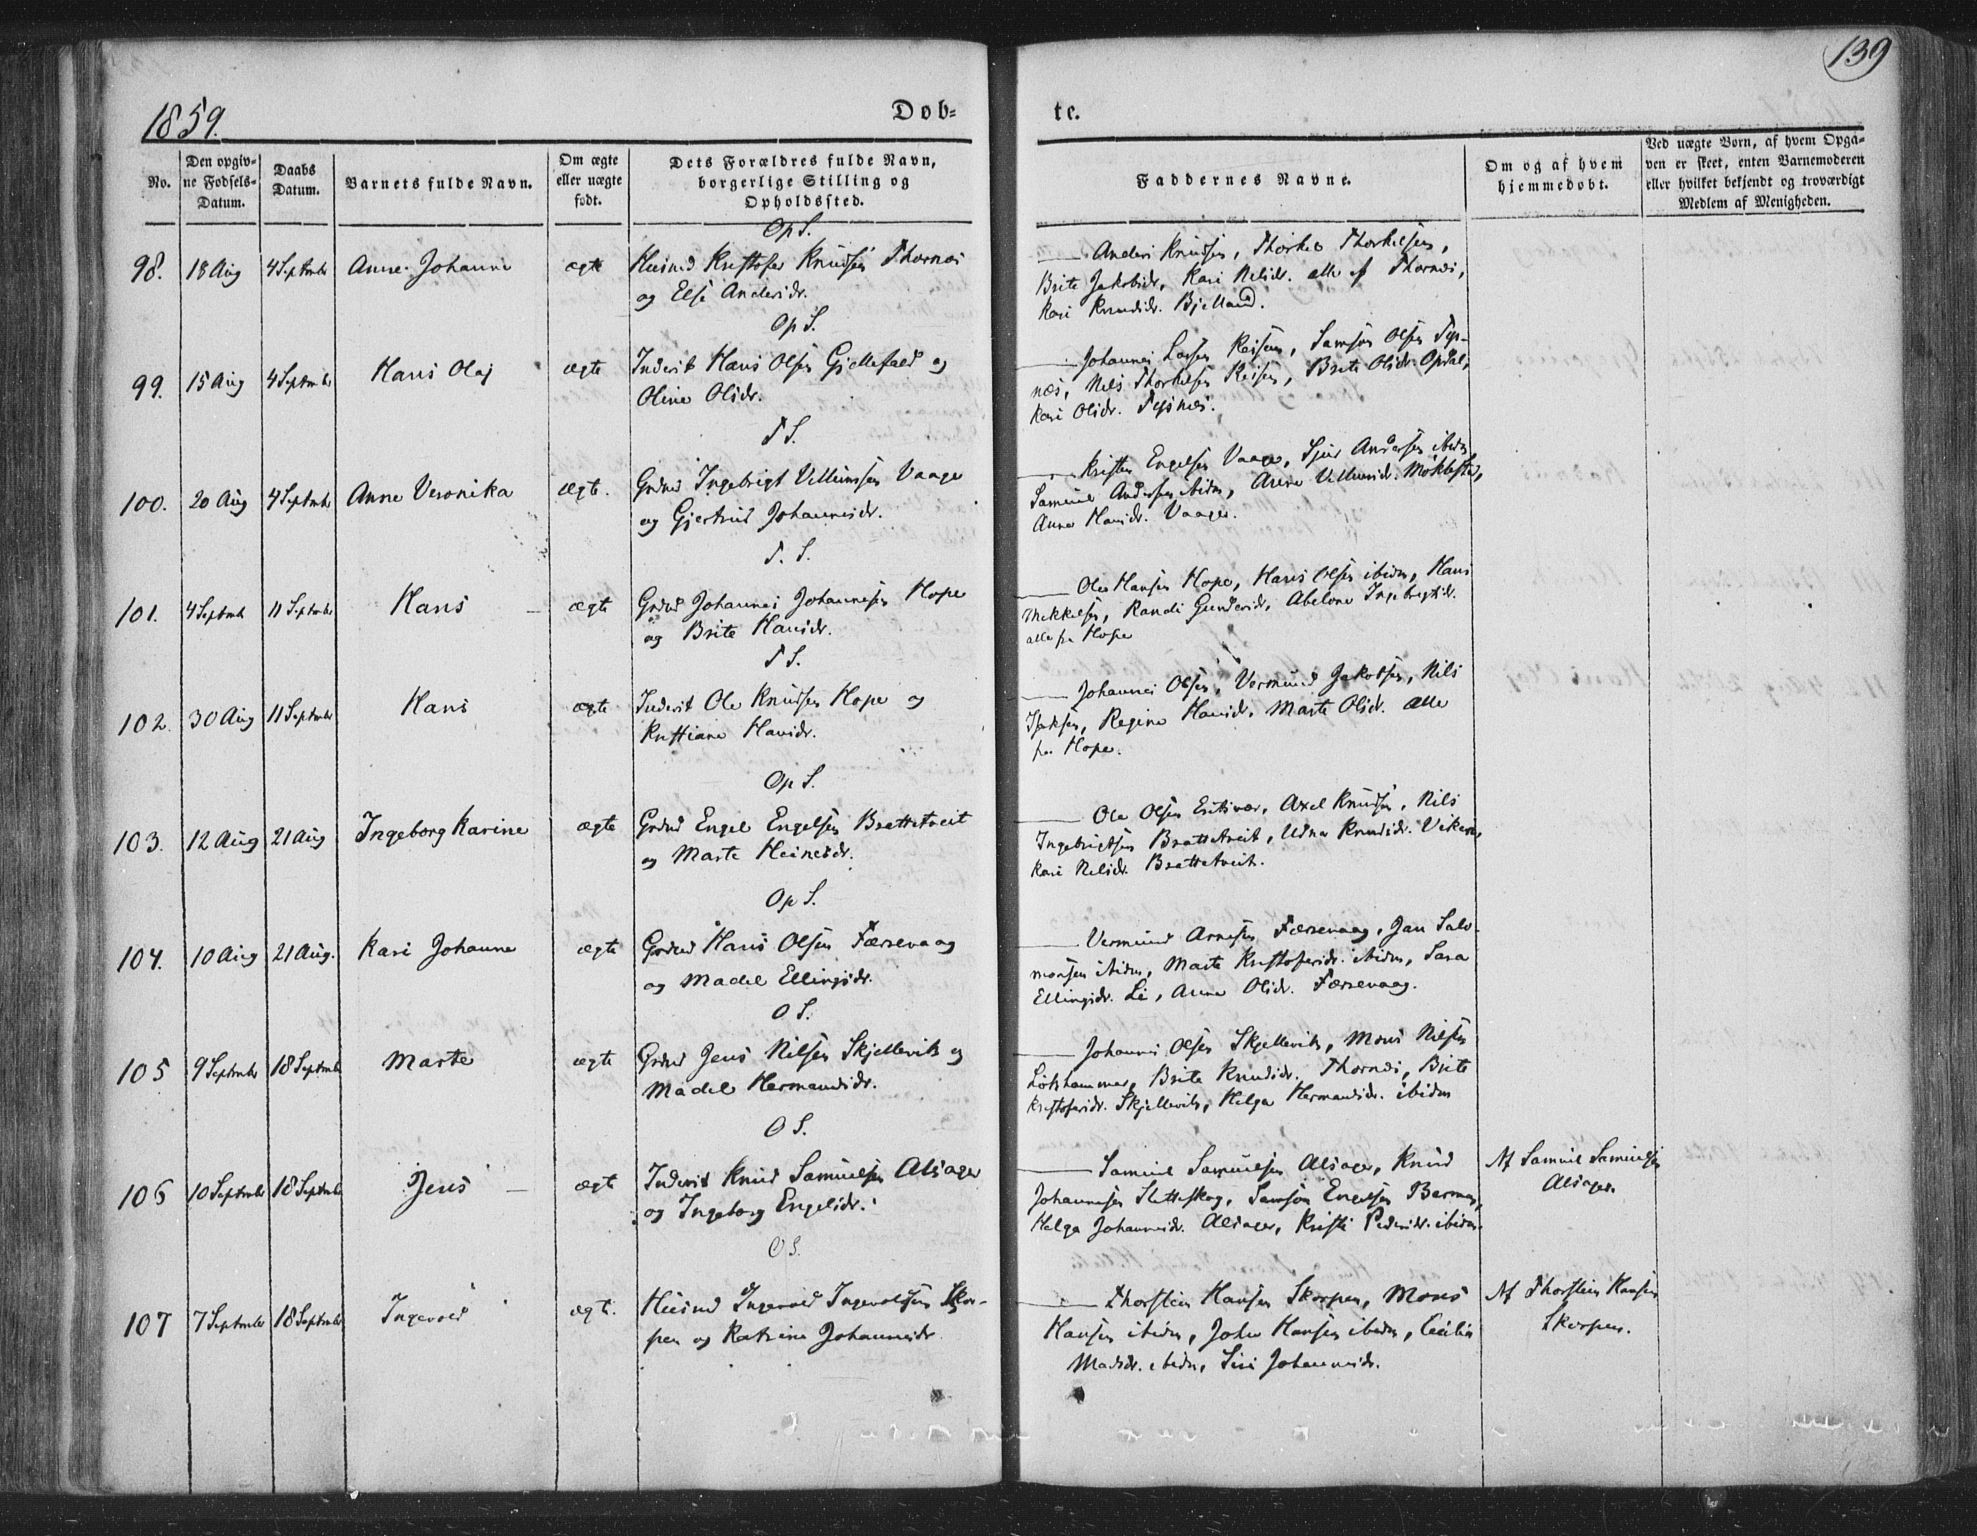 139
1859.
Døb=
te.
No.
Den opgiv=
ne Fødsels=
Datum.
Daabs
Datum.
Barnets fulde Navn.
Om ægte
eller uægte
født.
Dets Forældres fulde Navn,
borgerlige Stilling og
Opholdssted.
Faddernes Navne.
Om og af hvem
hjemmedøbt.
Ved uægte Børn, af hvem Opga=
ven er skeet, enten Barnemoderen
eller hvilket bekjendt og troværdigt
Medlem af Menigheden.
Op S.
98. 18 Aug 4 Septmbr Anne Johanne ægte Huusmd Kristofer Knudsen Thornæs
og Else Andersdr.
Anders Knudsen, Thorkel Thorkelsen,
Brite Jakobsdr, Kari Nilsdr. alle af Thornæs,
Kari Knudsdr. Bjelland.
Op S.
99. 15 Aug 4 Septmbr Hans Olaj ægte Inderst Hans Olsen Gjellefald og
Oline Olsdr.
Johannes Larsen Reisen, Samson Olsen Tys-
næs, Nils Thorkelsen Reisen, Brite Olsdr Opdal,
Kari Olsdr. Tysnæs.
T S.
100. 20 Aug 4 Septmbr Anne Veronika ægte. Grdmd Ingebrigt Villumsen Vaage
og Gjertrud Johannesdr.
Kristen Engelsen Vaage, Sjur Andersen ibidm
Samuel Andersen ibidm, Anne Villumsdr. Møklestad,
Anna Hansdr. Vaage.
T. S.
101. 4 Septmbr 11 Septmbr Hans ægte Grdmd Johannes Johannesen Hope
og Brite Hansdr.
Ole Hansen Hope, Hans Olsen ibidm, Hans
Mikkelsen, Randi Gundersdr, Abelone Ingebrigtsdr.
alle fra Hope
T S.
102. 30 Aug 11 Septmbr Hans ægte Inderst Ole Knudsen Hope og
Kristiane Hansdr.
Johannes Olsen, Vermund Jakobsen, Nils
Isaksen, Regine Hansdr, Marte Olsdr. alle
fra Hope.
Op S.
103. 12 Aug 21 Aug Ingeborg Karine ægte Grdmd Engel Engelsen Brattetveit
og Marte Heinesdr.
Ole Olsen, Axel Knudsen, Nils
Ingebrigtsen Brattetveit, Udna Knudsdr.
Kari Nilsdr. Brattetveit.
Op S.
104. 10 Aug 21 Aug. Kari Johanne ægte Grdmd Hans Olsen Færsevaag
og Madel Ellingsdr.
Vermund Arnesen Færsevaag, Jan Salo-
monsen ibidm, Marte Kristofersdr. ibidm, Sara
Ellingsdr. Li, Anne Olsdr. Færsevaag.
O S.
105 9 Septmbr 18 Septmbr Marte ægte Grdmd Jens Nilsen Skjellevik og
Madel Hermandsdr.
Johannes Olsen Skjellevik, Mons Nilsen
Brite Knudsdr. Thornæs, Brite
Kristofersdr. Skjellevik, Helga Hermandsdr. ibidm
O S.
106 10 Septmbr 18 Septmbr Jens ægt Inderst Knud Samuelsen Alsager
og Ingeborg Engelsdr.
Samuel Samuelsen Alsager, Knud
Johannesen Sletteskog, Samson Engelsen
Helga Johannesdr. Alsager, Kristi Pedersdr. ibidm.
Af Samuel Samuelsen
Alsager.
O S.
107 7 Septmbr 18 Septmbr Ingevald ægt. Huusmd Ingevald Ingevaldsen Skor-
pen og Katrine Johannesdr.
Thorstein Hansen Skorpen, Mons
Hansen ibidm, John Hansen ibidm, Cecilia
Madsdr. ibidm, Siri Johannesdr.
Af Thorstein Hansen
Skorpen.